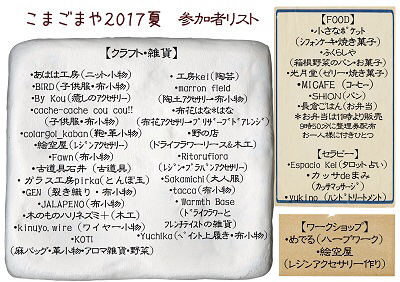 こまごまや2017夏 参加者リスト
【クラフト・雑貨】
・あはは工房(ニット小物)
・BIRD(子供服・布小物)
・By Kou(癒しのアクセサリー)
・cache-cache cou cou!!
(子供服・布小物)
・colargol_kaban(鞄・革小物)
・絵空屋(レジンアクセサリー)
・Fawn(布小物)
・古道具石井(古道具)
・ガラス工房pirka(とんぼ玉)
・GEN(裂き織り・布小物)
・JALAPENO(布小物)
・木のものハリネズミ+(木工)
・kinuyo.wire(ワイヤー小物)
・KOTI
(麻バッグ・革小物・アロマ雑貨・野菜)
・工房kei(陶芸)
・marron field
(陶土アクセサリー・布小物)
・布花はな*はな
(布花アクセサリー・プリザーブドアレンジ)
・野の店
(ドライフラワーリース&木工)
・Ritorufiora
(レジン・プラバンアクセサリー)
・Sakamichi(大人服)
・tocca(布小物)
・Warmth Base
(ドライフラワーと
フレンチテイストの雑貨)
・Yuchika(ペイント上履き・布小物)
【FOOD】
・小さなポケット
(シフォンケーキ・焼き菓子)
・ふくらしや
(箱根野菜のパン・お菓子)
・光月堂(ゼリー・焼き菓子)
・MICAFE(コーヒー)
・SHION(パン)
・長倉ごはん(お弁当)
*お弁当は10時より販売
9時50分に整理券配布
お一人様1つ付きひとつ
【セラピー】
・Espacio Kei(タロット占い)
・カッサdeまみ
(カッサマッサージ)
・yukino(ハンドトリートメント)
【ワークショップ】
・めでる(ハーブワーク)
・絵空屋
(レジンアクセサリー作り)